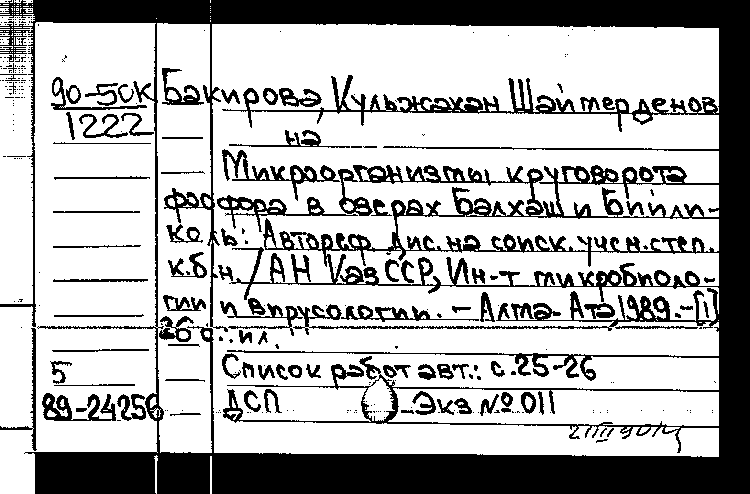 90-5СК Бакирова, Кульжахан Шаймерденов
1222 на
Микроорганизмы круговорота
фосфора в озерах Балхаш и Бийли-
коль: Автореф. дис. на соиск. учен. степ.
к.б.н. / АН КазССР, Ин-т микробиоло-
гии и вирусологии. - Алма-Ата, 1989. - [1]
26 с.: ил.
5 Список работ авт.: с. 25-26
89-24256 ДСП Экз № 011